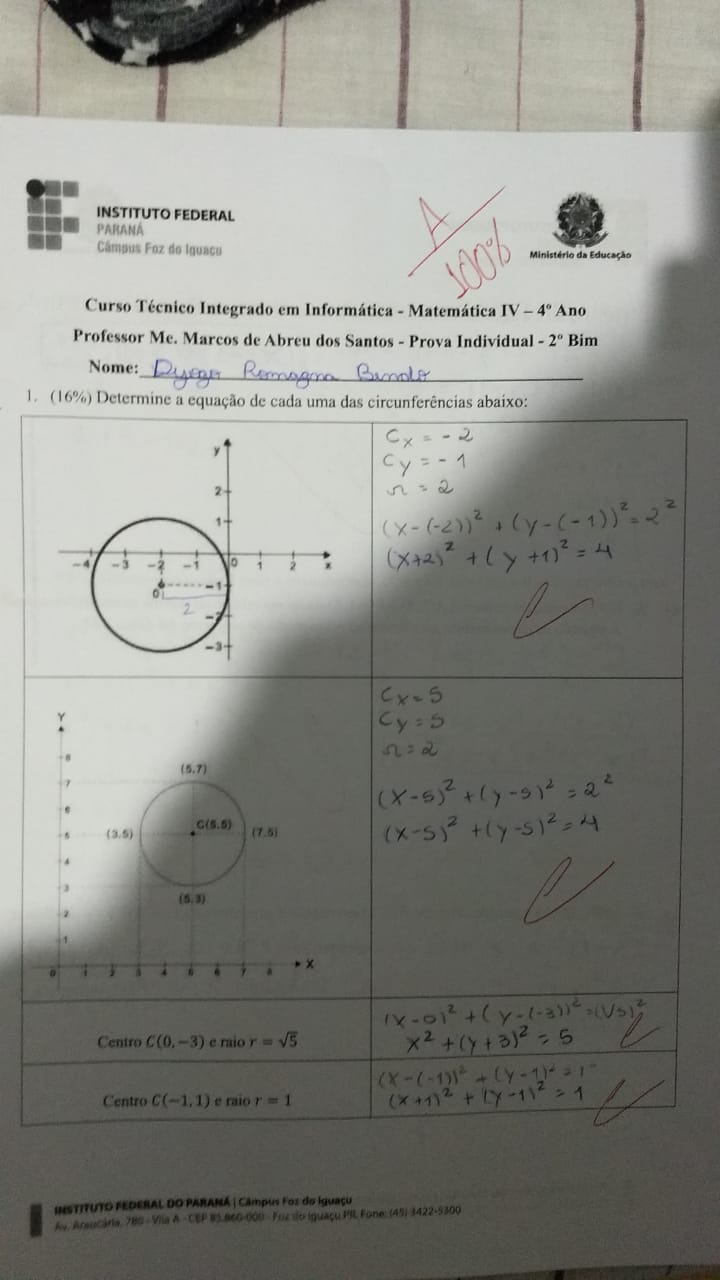 INSTITUTO FEDERAL
PARANÁ
Câmpus Foz do Iguaçu
A
100%
Ministério da Educação
Curso Técnico Integrado em Informática - Matemática IV – 4º Ano
Professor Me. Marcos de Abreu dos Santos - Prova Individual - 2º Bim
Nome: Dyogo Romagna
1. (16%) Determine a equação de cada uma das circunferências abaixo:
y
2
1
-4 -3 -2 -1 0 1 2 x
-1
2
-2
-3
Cx = -2
Cy = -1
r = 2
(x-(-2))² + (y-(-1))² = 2²
(x+2)² + (y+1)² = 4
Y
8
7
6
5
4
3
2
1
0 1 2 3 4 5 6 7 8 X
(5,7)
(3,5)
C(5,5)
(7,5)
(5,3)
Cx = 5
Cy = 5
r = 2
(x-5)² + (y-5)² = 2²
(x-5)² + (y-5)² = 4
Centro C(0, −3) e raio r = √5
(x-0)² + (y-(-3))² = (√5)²
x² + (y+3)² = 5
Centro C(−1, 1) e raio r = 1
(x-(-1))² + (y-1)² = 1
(x+1)² + (y-1)² = 1
INSTITUTO FEDERAL DO PARANÁ | Câmpus Foz do Iguaçu
Av. Araucária, 780 - Vila A - CEP 85.860-000 - Foz do Iguaçu PR. Fone: (45) 3422-5300